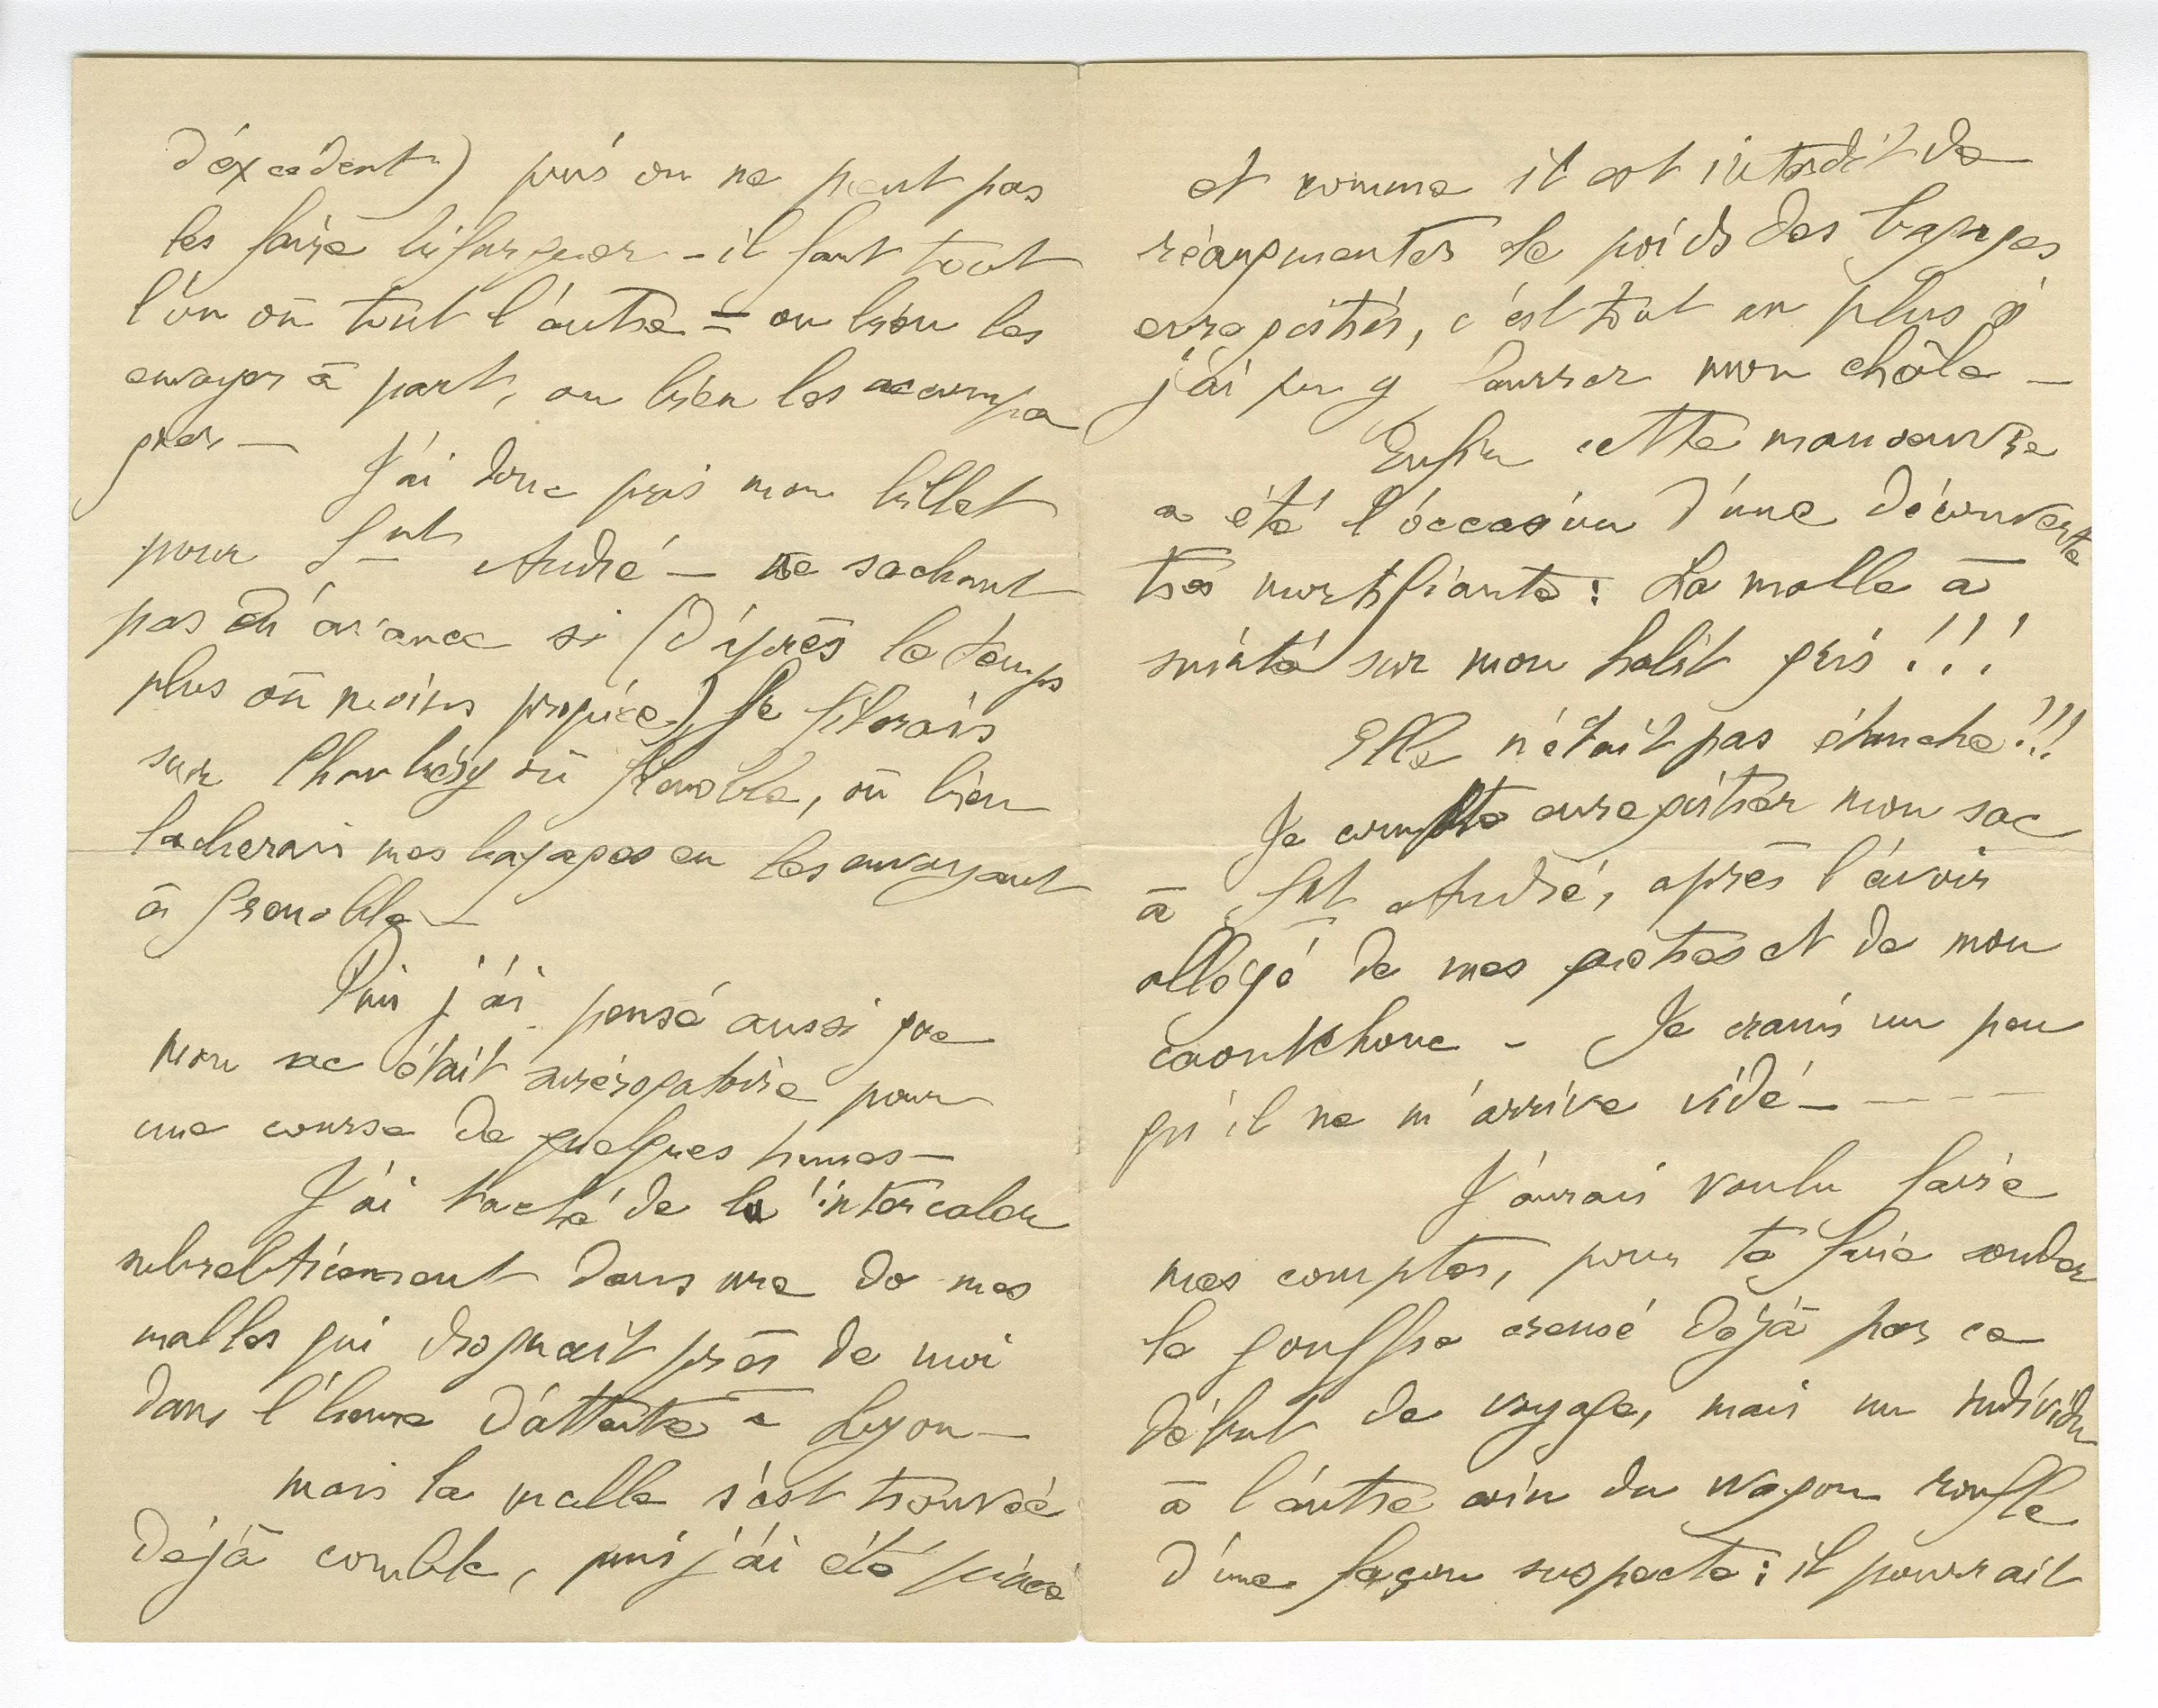 d'éxcédent) puis on ne peut pas
les faire bifurquer - il faut tout
l'un ou tout l'autre = ou bien les
envoyer à part, ou bien les accompa
gner — J'ai donc pris mon billet
pour Snt André — ne sachant
pas d'avance si (d'après le temps
plus ou moins propice) je filerais
sur Chambéry ou Grenoble, ou bien
lacherais mes bagages en les envoyant
à Grenoble —
Puis j'ai pensé aussi que
mon sac était surérogatoire pour
une course de quelques heures —
J'ai taché de l'intercaler
subrebticement dans une de mes
malles qui drognait près de moi
dans l'heure d'attente à Lyon —
mais la malle s'est trouvée
déjà comble, puis j'ai été pincé
et comme il est interdit de
réaugmenter le poids des bagages
enregistrés, c'est tout au plus si
j'ai pu y fourrer mon châle —
Enfin cette manoeuvre
a été l'occasion d'une découverte
très mortifiante : La malle a
suinté sur mon habit gris !!!
Elle n'était pas étanche !!!
Je compte enregistrer mon sac
à Snt André, après l'avoir
allégé de mes guêtres et de mon
caoutchouc - Je crains un peu
qu'il ne m'arrive vidé — - - - -
J'aurais voulu faire
mes comptes, pour te faire sonder
le gouffre creusé déjà par ce
début de voyage, mais un individu
à l'autre coin du wagon ronfle
d'une façon suspecte ; il pourrait